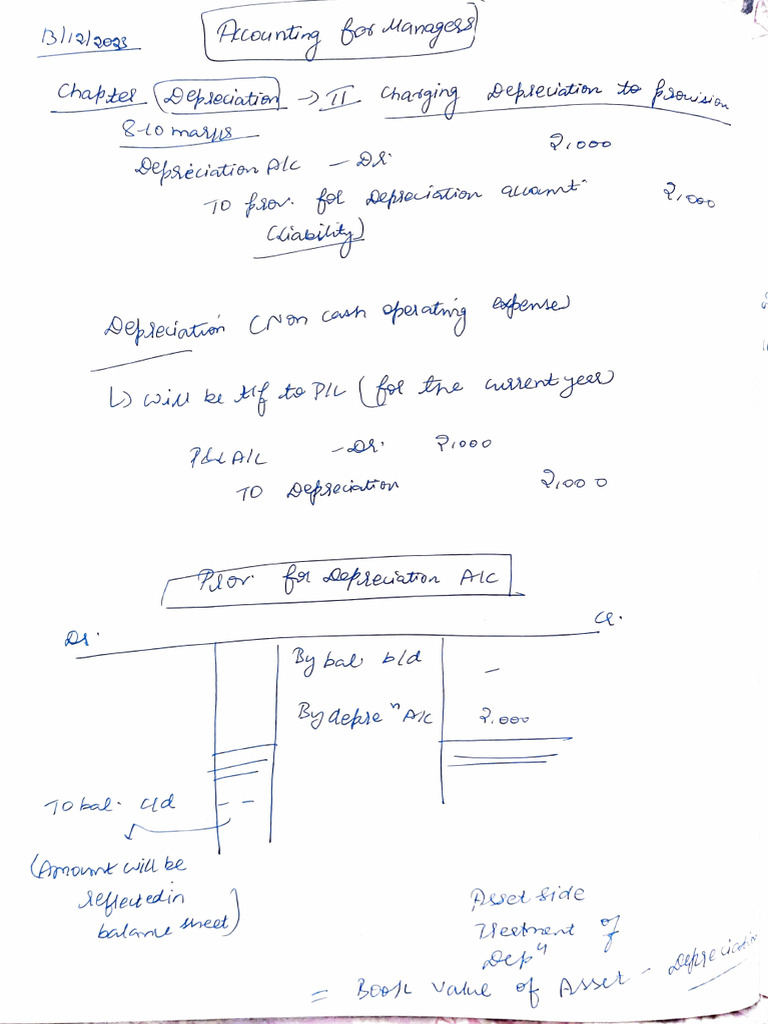 13/12/2023
Accounting for Managers
Chapter Depreciation → II Charging Depreciation to provision
8-10 marks
Depreciation A/c - Dr. 2,000
TO prov. for Depreciation account 2,000
(Liability)
Depreciation (Non cash operating expense)
↳ will be t/f to P/L (for the current year)
P&L A/c - Dr. 2,000
TO Depreciation 2,000
Prov. for Depreciation A/c
Dr. Cr.
By bal. b/d -
By depreⁿ A/c 2,000
TO bal. c/d - -
(Amount will be
reflected in
balance sheet)
Asset side
Treetment of
Depⁿ
= Book value of Asset - Depreciation